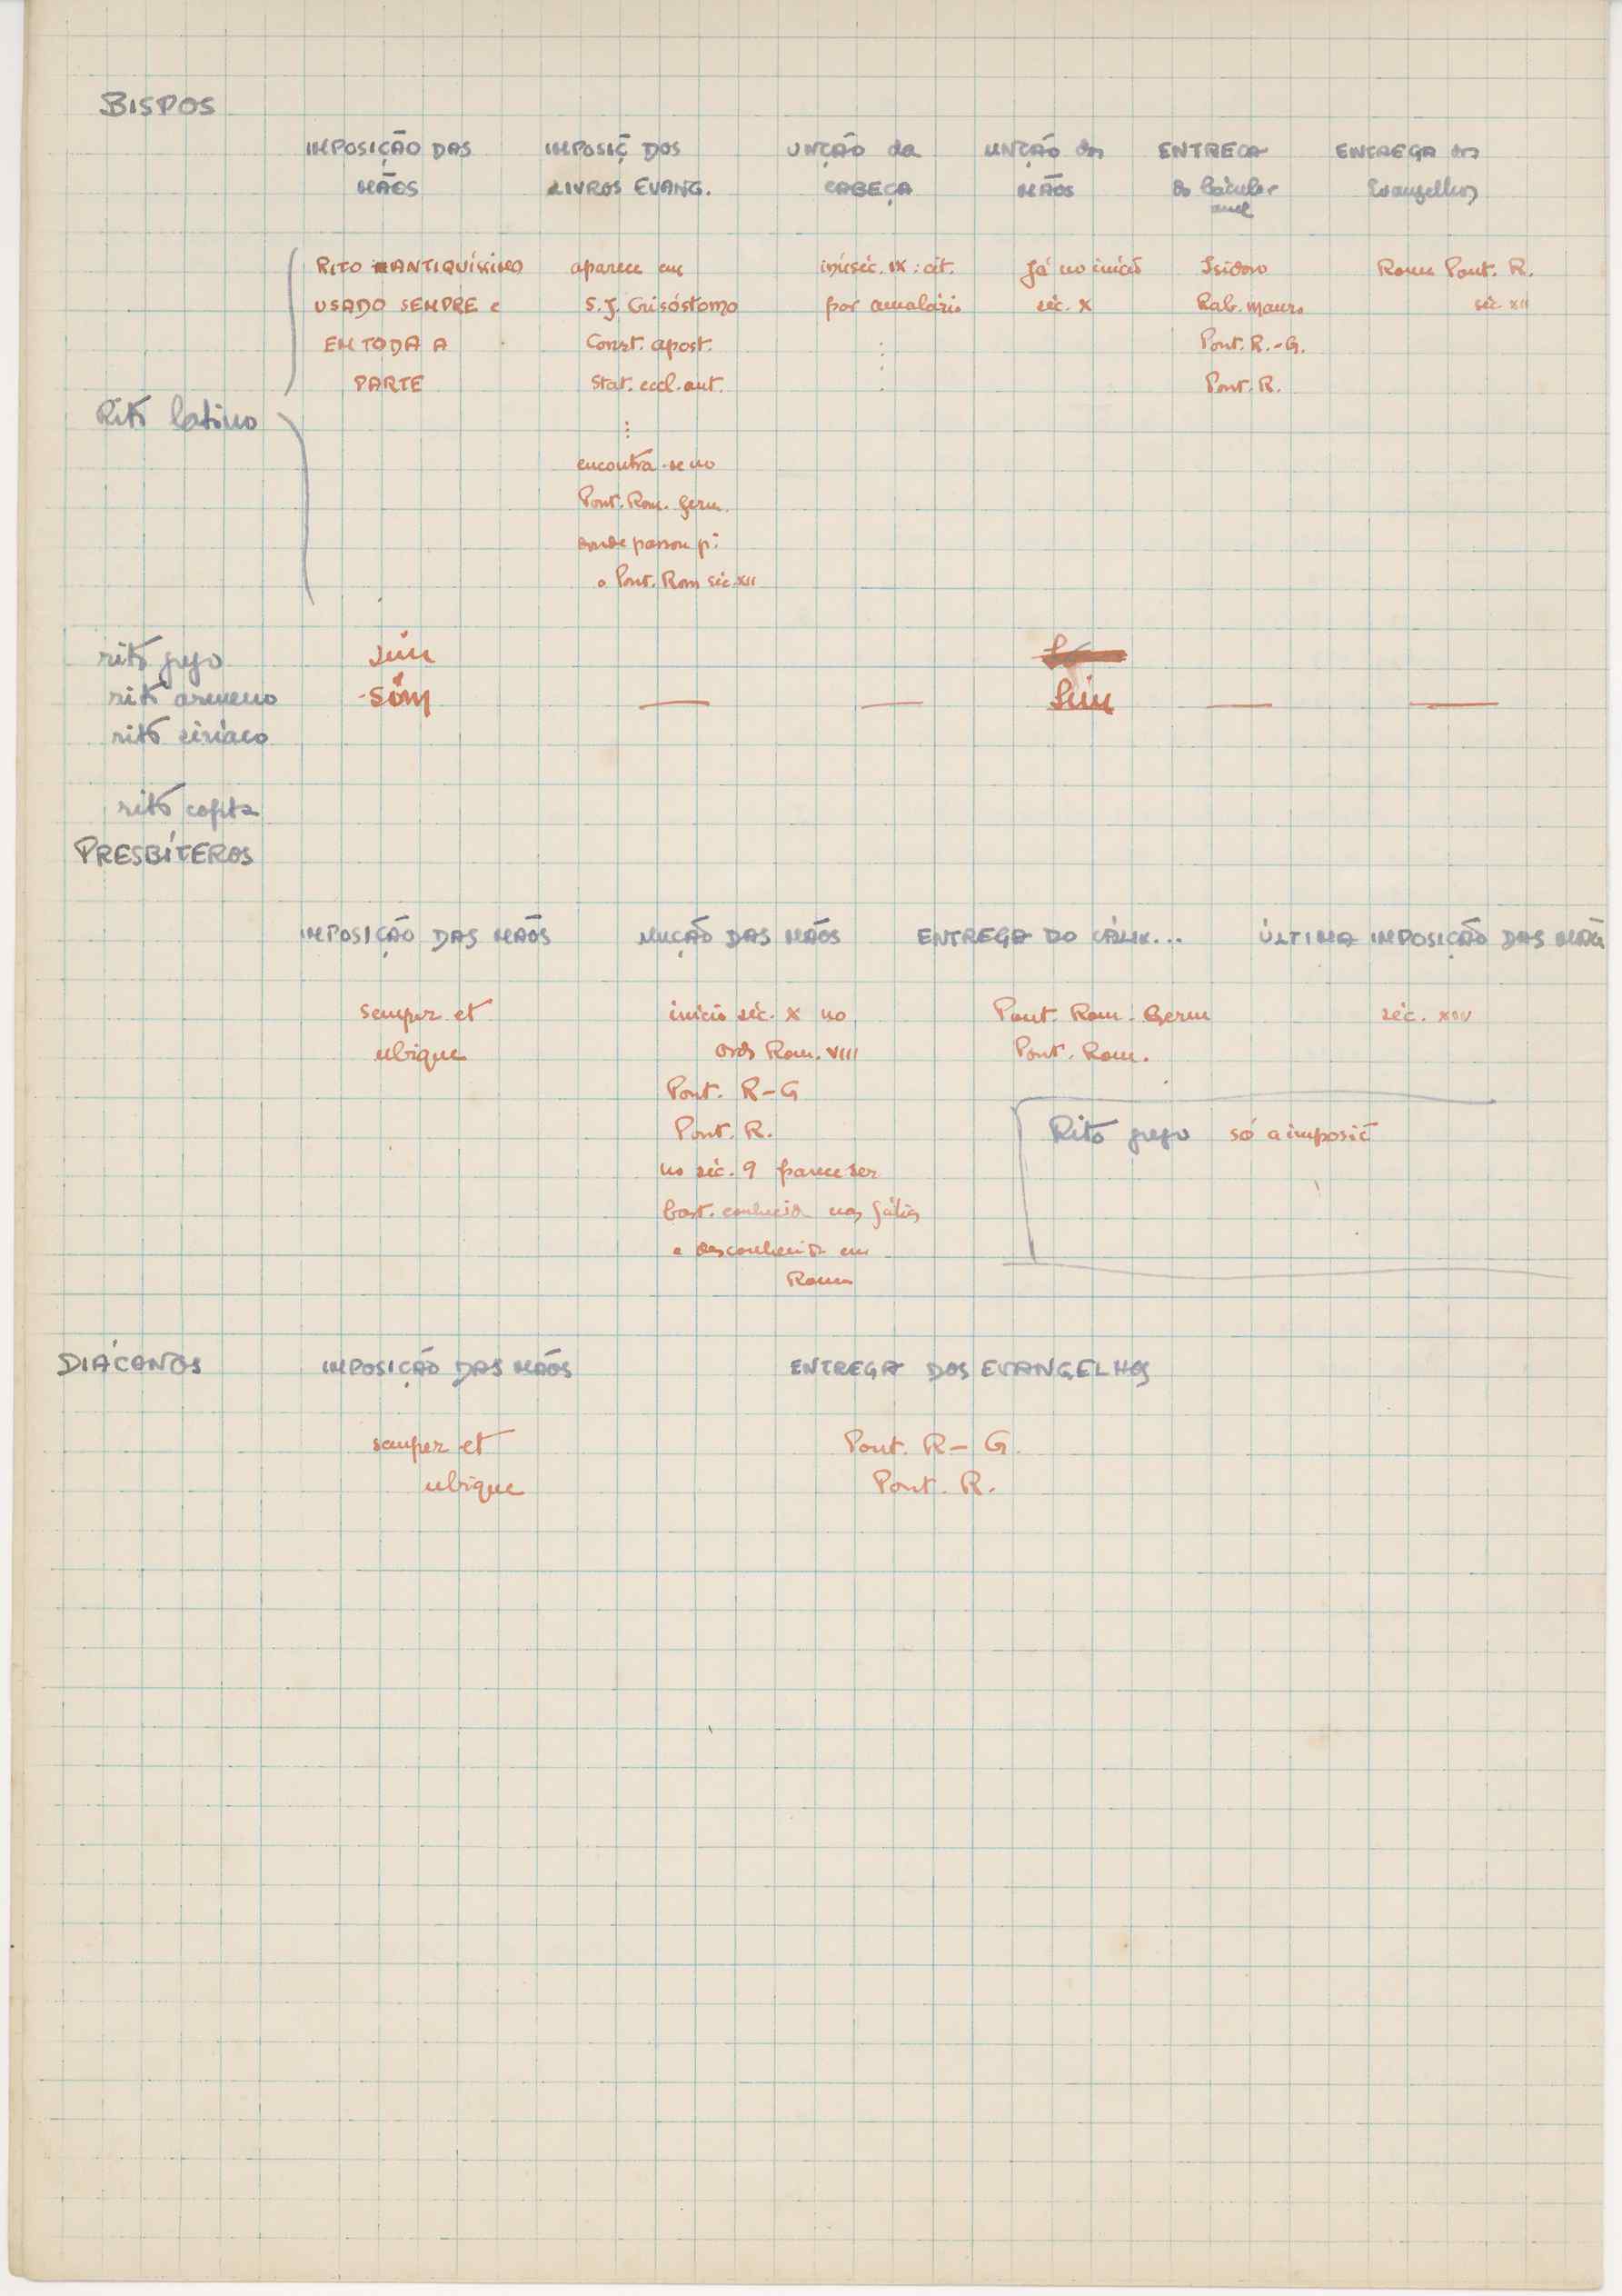 BISPOS
IMPOSIÇÃO DAS MÃOS
IMPOSIÇ DOS LIVROS EVANG.
UNÇÃO da CABEÇA
UNÇÃO das MÃOS
ENTREGA do báculo e anel
ENTREGA dos Evangelhos
Rito latino
RITO ANTIQUÍSSIMO
USADO SEMPRE e
EM TODA A
PARTE
aparece em
S. J. Crisóstomo
Const. apost.
Stat. eccl. ant.
⋮
encontra-se no
Pont. Rom. Germ.
onde passou p:
o Pont. Rom séc. XII
iníc séc. IX: cit.
por Amalário
⋮
já no início
séc. X
Isidoro
Rab. Mauro
Pont. R.-G.
Pont. R.
Rom Pont. R.
séc. XII
rito grego sim
rito armeno sim — — Sim — —
rito siríaco
rito copta
PRESBÍTEROS
IMPOSIÇÃO DAS MÃOS UNÇÃO DAS MÃOS ENTREGA DO CÁLIX... ÚLTIMA IMPOSIÇÃO DAS MÃO
semper et
ubique
início séc. X no
Ordo Rom. VIII
Pont. R-G
Pont. R.
no séc. 9 parece ser
bast. conhecida nas Gálias
e desconhecida em
Roma
Pont. Rom. Germ
Pont. Rom.
séc. XIV
Rito grego só a imposiç
DIÁCONOS IMPOSIÇÃO DAS MÃOS ENTREGA DOS EVANGELHOS
semper et
ubique
Pont. R- G.
Pont. R.